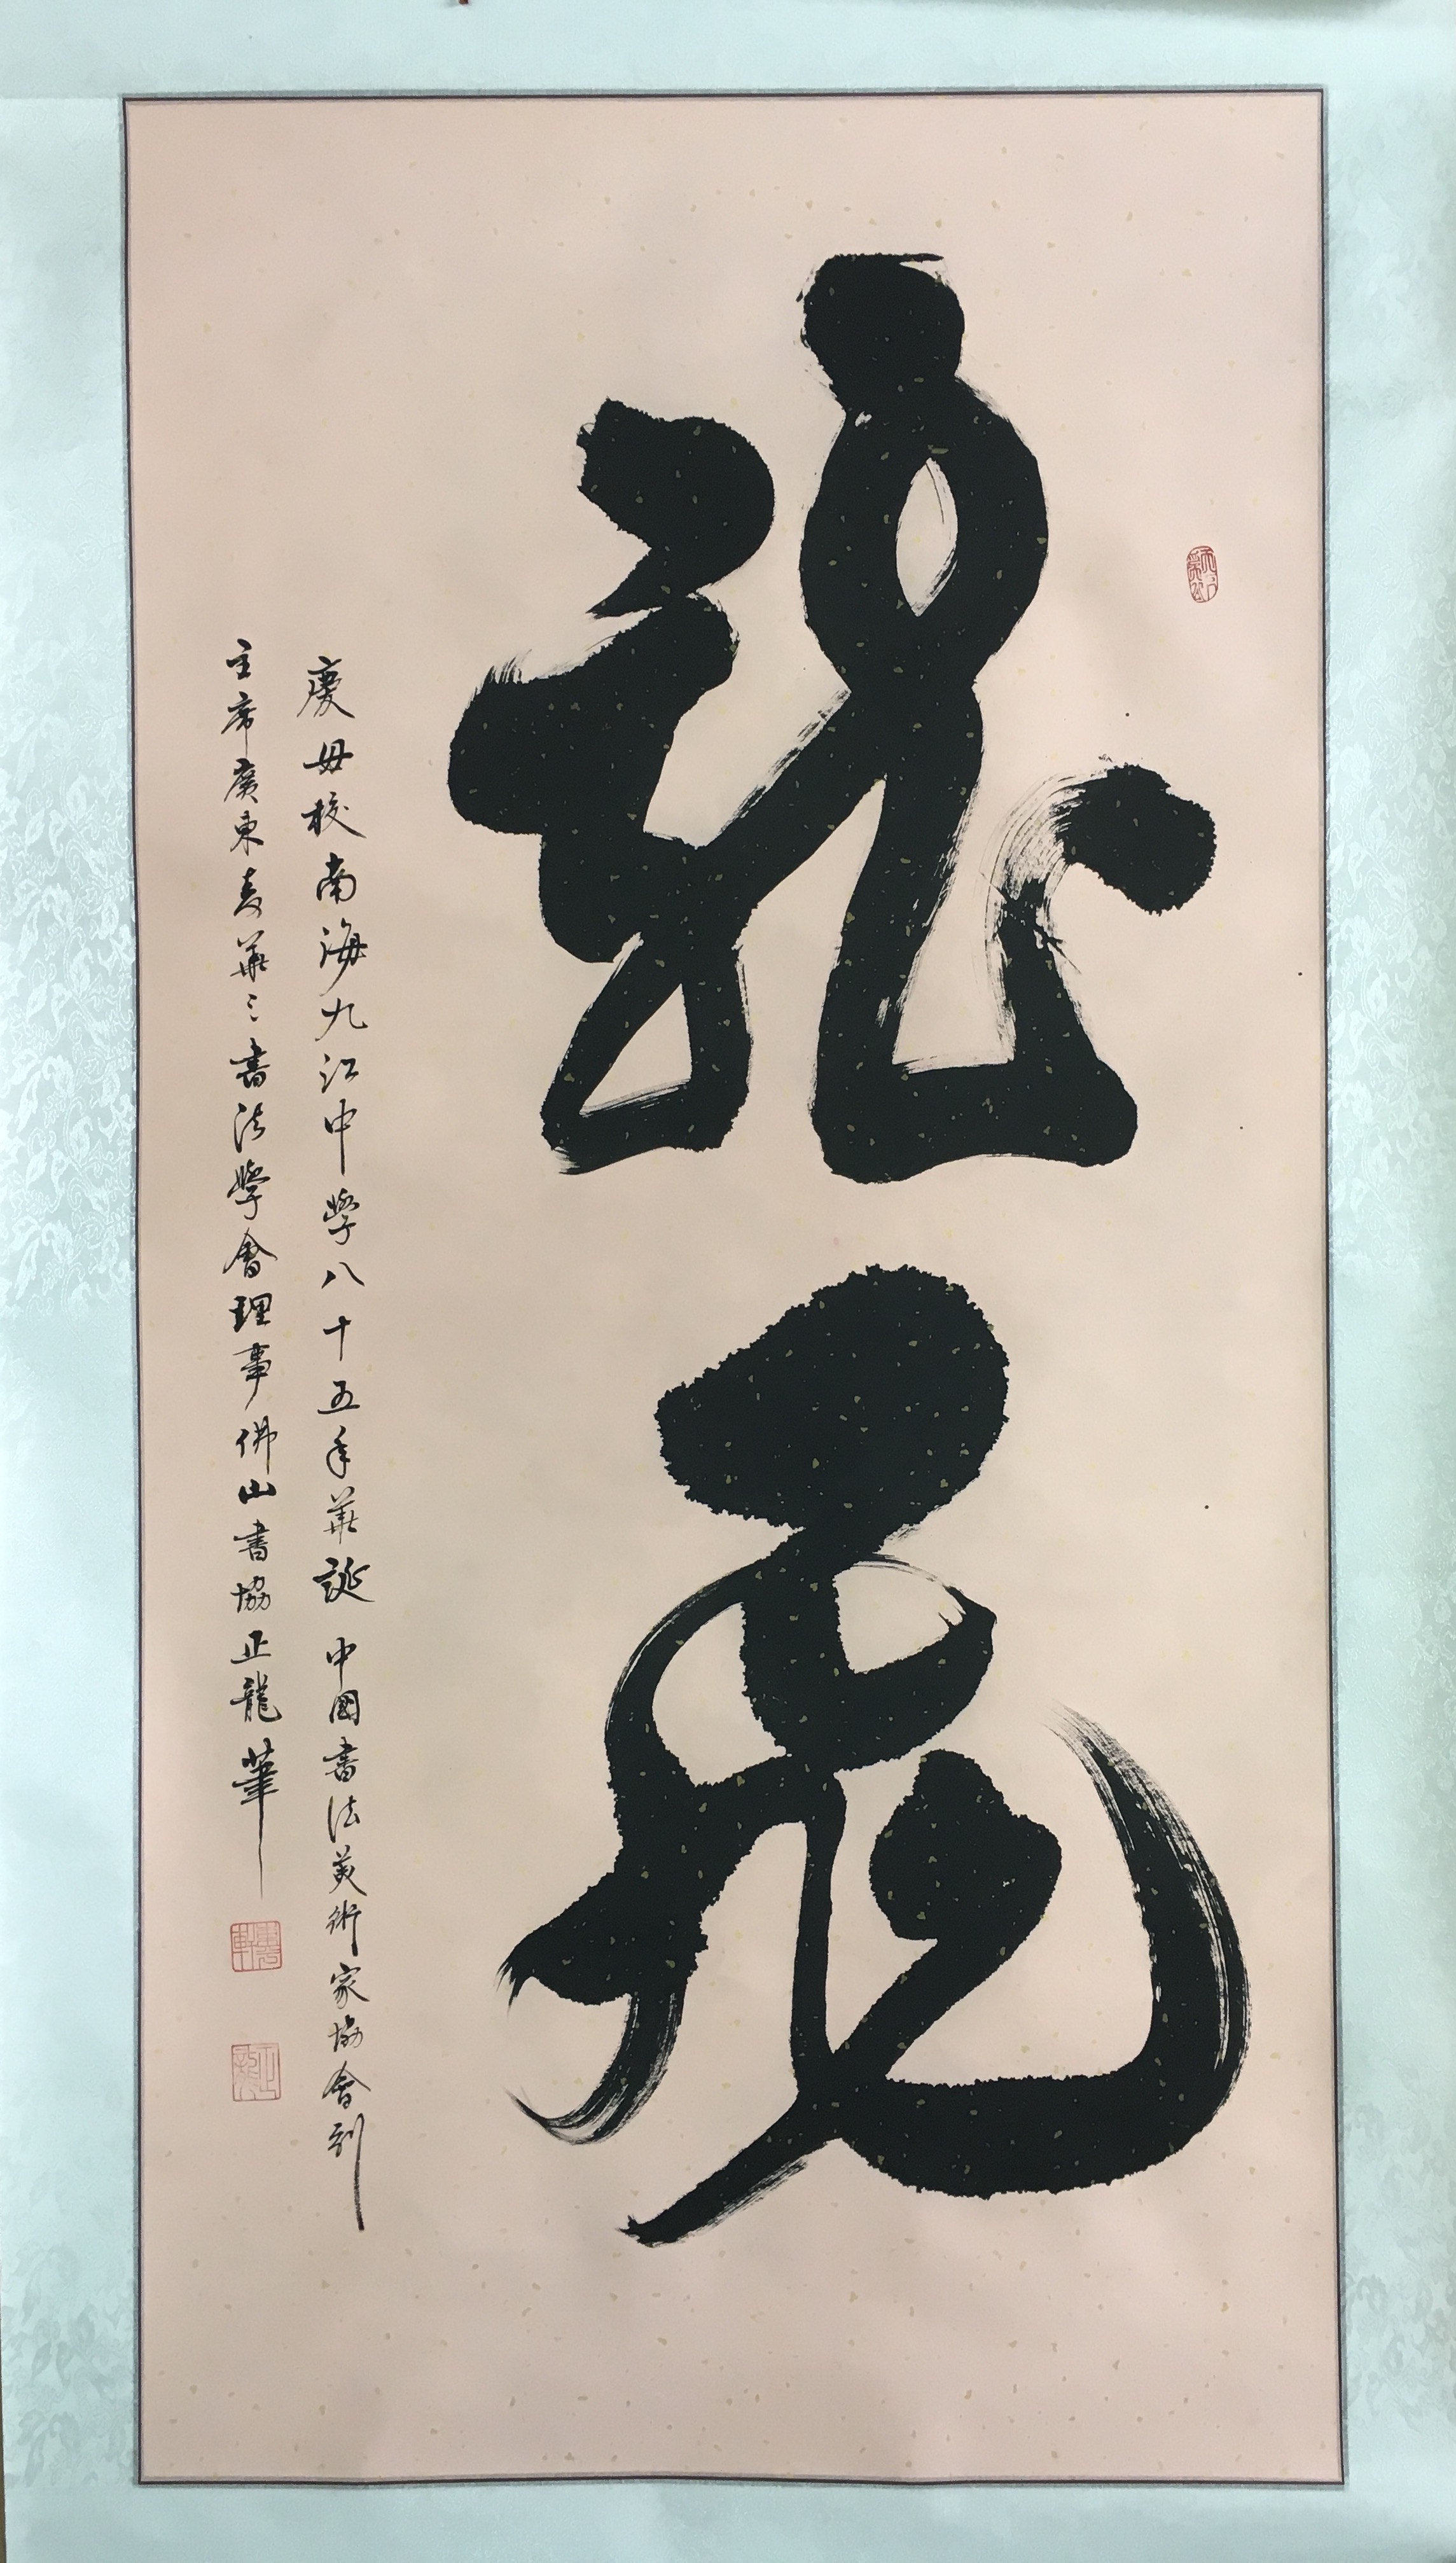 龍飛
慶母校南海九江中學八十五年華誕 中國書法美術家協會副
主席廣東麥華三書法學會理事佛山書協正龍筆